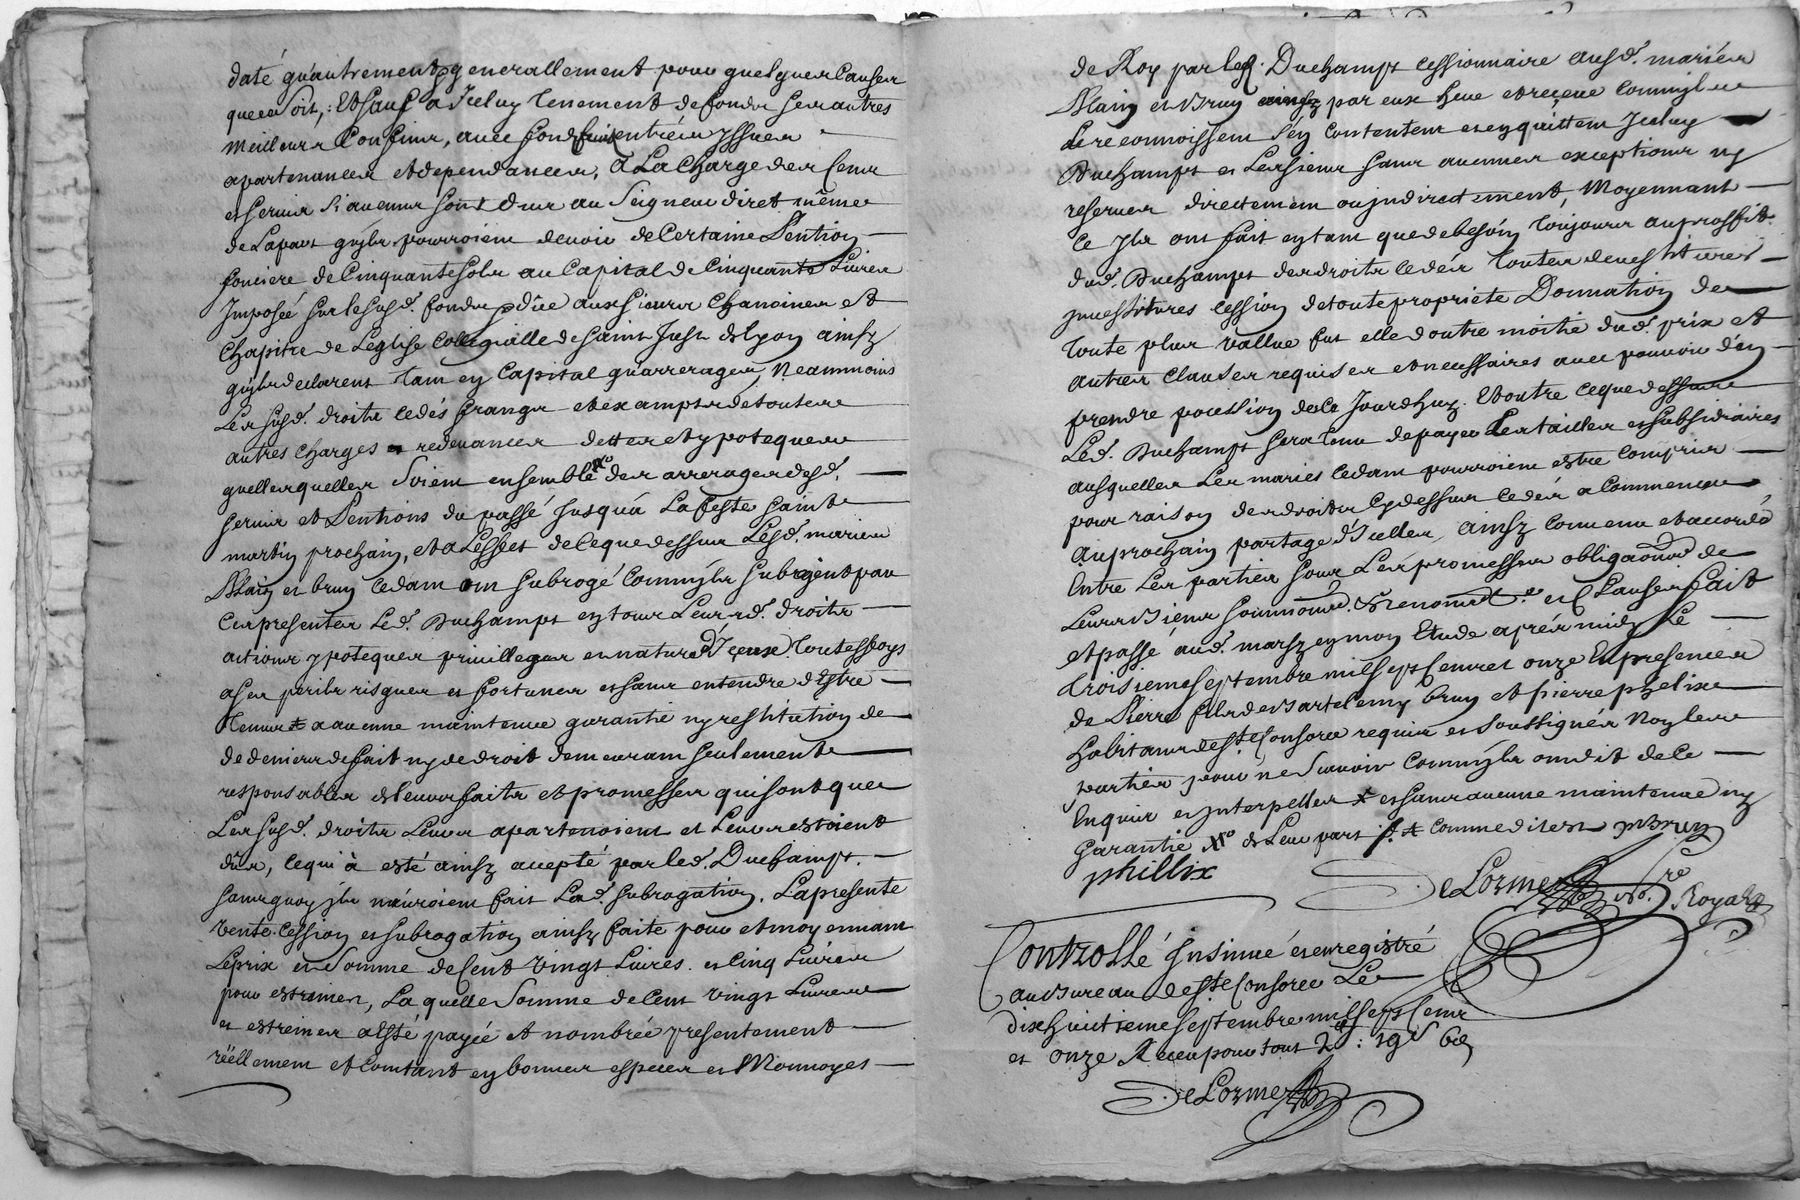 daté qu'autrement & generallement pour quelques causes
que ce soit, et sauf a Iceluy tenement de fonds ses autres
meilleurs Confins, avec fonds entrées yssues
apartenances et dependances, a La Charge des cens
et servis si aucuns sont dus au Seigneur diret même
de Lapart qu'ils pourroient devoir de Certaine Pention
fonciere de Cinquante sols au Capital de Cinquante Livres
Imposée sur le susd. fonds & düe aux sieurs Chanoines et
Chapitre de Leglise Collegialle de saint Just de Lyon ainsy
qu'ils declarent tant en Capital qu'arrerages, Neammoins
Les susd. droits cedés francs et examps de toutes
autres charges et redevances dettes et ypoteques
quelles quelles soient ensemble des arrerages desd.
servis et Pentions du passé Jusqu'á La feste saint
martin prochain, et a Leffet de ce que dessus Lesd. mariés
Alain et brun cedant ont subrogé Comm'ils subrogent par
Ces presentes Led. Duchamps en tous Leursd. droits
actions ypoteques privilleges et nature d'Iceux Touteffoys
a ses perils risques et fortunes et sans entendre d'Estre
Tenus a aucune maintenue garantie ny restitution de
de deniers de fait ny de droit demeurant seulement
responsables de Leurs faits et promesses qui sont que
Les susd. droits Leurs apartenoient et Leurs estoient
dus, ce qui à esté ainsy accepté par led. Duchamps.
sans quoy ils n'auroient fait Lad. subrogation. La presente
vente Cession et subrogation ainsy faite pour et moyennant
Le prix et somme de Cent vingt Livres et Cinq Livres
pour estreines, La quelle somme de Cent vingt Livres
et estreines a esté payée et nombrée presentement
réellement et Comtant en bonnes especes et Monnoyes
de Roy par led. Duchamps cessionnaire ausd. mariés
Alain et Brun par eux heue et reçeue Comm'ils
Le reconnoissent s'en Contentent et en quittent Iceluy
Duchamps et Les siens sans aucunes exceptions ny
reserves directement ou indirectement, Moyennant
Ce Ils ont fait en tant que de besoin toujours au proffit
dud. Duchamps des droits cedés toutes devestitures
investitures cession de toute proprieté Donnation de
toute plus vallue fut elle d'outre moitié dud. prix et
autres clauses requises et necessaires avec pouvoir d'en
prendre possession de Ce Jourdhuy. Et outre ce que dessus
Led. Duchamps sera tenu de payer Les tailles et subsidiaires
ausquelles Les mariés cedant pourroient estre Compris
pour raison des droits cy dessus cedés a Commencer
au prochain partage d'Icelles, ainsy Convenu et accordé
Entre Les parties sous Les promesses obligaons de
Leurs biens soumons. Renonns. et Clauses fait
et passé aud. marsy en mon Etude aprés midy Le
troisieme septembre mil sept Cents et onze En presence
de Pierre fils de Bartelemy brun et pierre phelix
habitants de ste. Consorce requis et soussignés Non les
parties pour ne scavoir Comm'ils ont dit de Ce
Enquis et Interpelles et sans aucune maintenue ny
Garantie de Leur part Comme dit est P Brun
phillix
DeLorme Nore. Royal
Controllé Insinué et enregistré
au Bureau de ste Consorce Le
dixhuitieme septembre mil sept Cens
et onze Receu pour tout 2# : 19s 6d
DeLorme